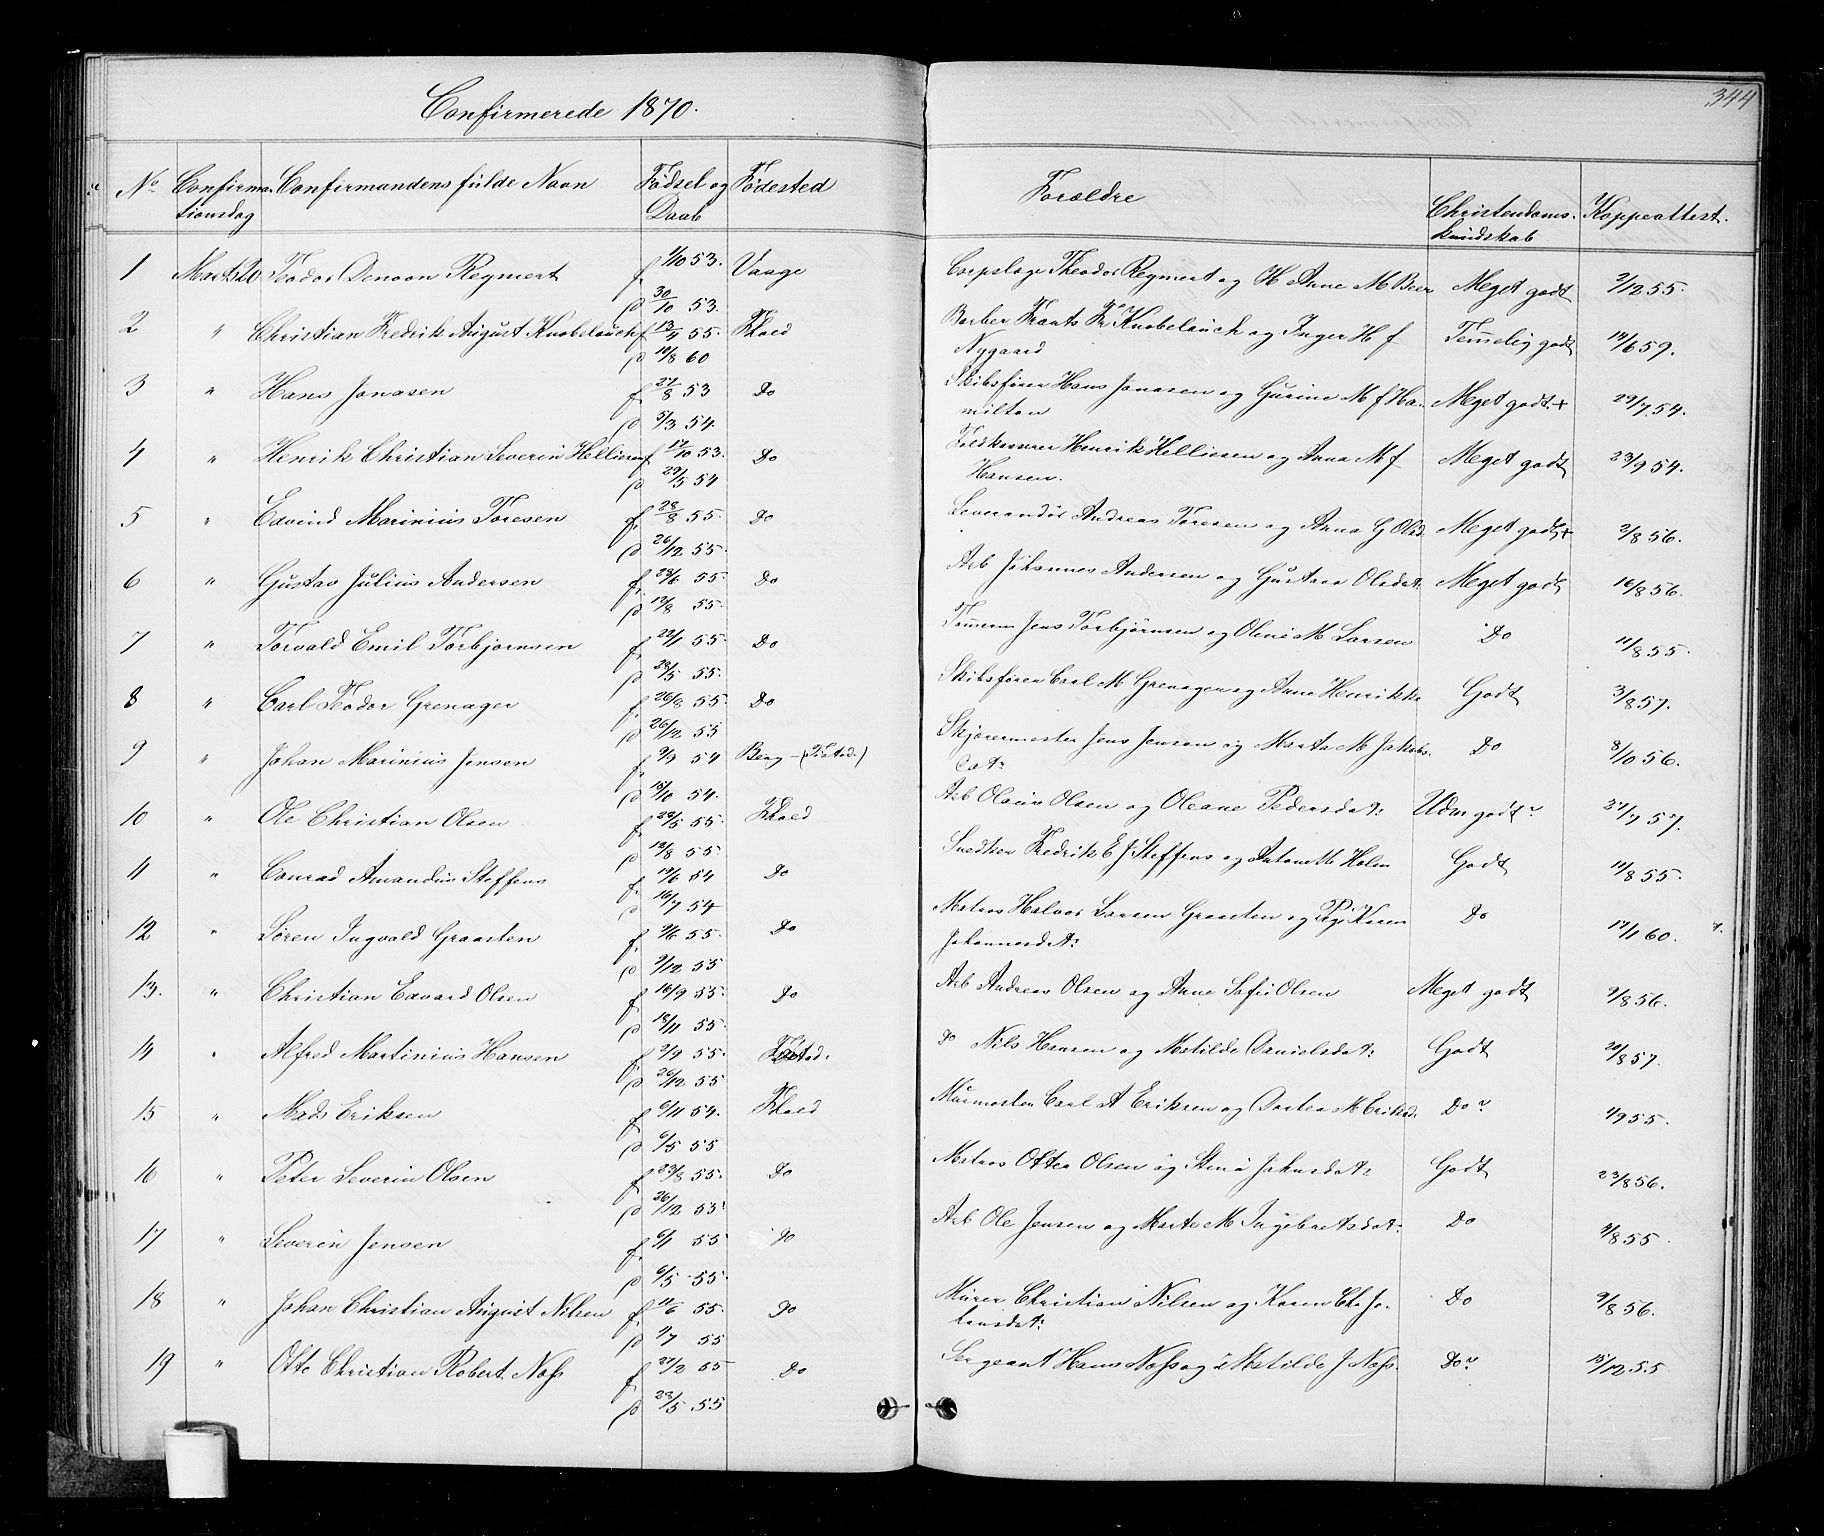 344
Confirmerede 1870.
No Confirma- Confirmandens fulde Navn Fødsel og Fødested Forældre Christendoms- Koppeattest.
tionsdag Daab kundskab
1 Marts 20 Teodor Denoon Reymert f 1/10 53. Vaage Corpslæge Theodor Reymert og H Anne M Meget godt 2/12 55.
d 30/10 53.
2 " Christian Fredrik August Knobelauch f 13/4 55. Fhald Barber Frants Fr Knobelauch og Inger H f Temelig godt 19/6 59.
d 10/8 60 Nygaard
3 " Hans Jonasen f 27/8 53 Do Skibsfører Hans Jonasen og Gurine M f Ha- Meget godt + 29/7 54.
d 5/3 54. milton
4 " Henrik Christian Severin Helliesen f 17/10 53. Do Toldkasserer Henrik Helliesen og Anna M f Meget godt 23/9 54.
d 29/5 54 Hansen.
5 " Edvind Marinius Toresen f. 28/8 55. Do Leverandør Andreas Toresen og Anna G Olsd. Meget godt + 2/8 56.
d 26/12 55.
6 " Gustav Julius Andersen f. 28/6 55. Do Arb Johannes Andersen og Gustava Olsdat: Meget godt 16/8 56.
d 12/8 55.
7 " Torvald Emil Torbjørnsen f. 22/1 55. Do Tømerm Jens Torbjørnsen og Oline M Larsen Do 11/8 55.
d 28/5 55.
8 " Carl Teodor Grenager f. 26/8 55. Do Skibsfører Carl M Grenager og Anne Henrikke Godt 3/8 57.
d 26/12 55
9 " Johan Marinius Jensen f. 9/9 54 Berg - (Tistad.) Skjærermester Jens Jensen og Marta M Jakobs- Do 8/10 56.
d 15/10 54. dat:
10 " Ole Christian Olsen f 29/5 55. Fhald Arb Olaus Olsen og Oleane Pedersdat: Udm godt 27/7 57.
d 12/8 55.
11 " Conrad Amandus Steffens f. 19/6 54 Do Snedker Fredrik E J Steffens og Antonette Holm Godt 11/8 55.
d 16/7 54
12 " Søren Ingvald Graasten f. 9/6 55. Do Matros Halvor Larsen Graasten og Pige Karen Do 17/1 60.
d 9/12 55 Johannesdat:
13. " Christian Edvard Olsen f. 16/9 55. Do Arb Andreas Olsen og Anne Sofie Olsen Meget godt 9/8 56.
d 18/11 55.
14 " Alfred Martinius Hansen f. 2/9 55. Tistad: do Nils Hansen og Matilde Danielsdat: Godt 20/8 57.
d 26/12 55
15 " Mads Eriksen f. 6/11 54. Fhald Murmester Carl A Eriksen og Dortea M Eriksd. Do 4/9 55.
d 6/5 55
16 " Peter Severin Olsen f. 23/8 55. Do Matros Otter Olsen og Stine Johnsdat: Godt 23/8 56.
d 26/12 55
17 " Severin Jensen f. 6/1 55 Do Arb Ole Jensen og Marte M Ingebretsdat: Do 9/8 55.
d 6/5 55.
18 " Johan Christian August Nilsen f. 11/6 55. Do Murer Christian Nilsen og Karen Chr Jo- Do 9/8 56.
d 1/7 55 hansdat:
19 " Otto Christian Robert Næss f. 27/2 55 Do Sergeant Hans Næss og Matilde J Næss. Do 15/12 55.
d 28/5 55